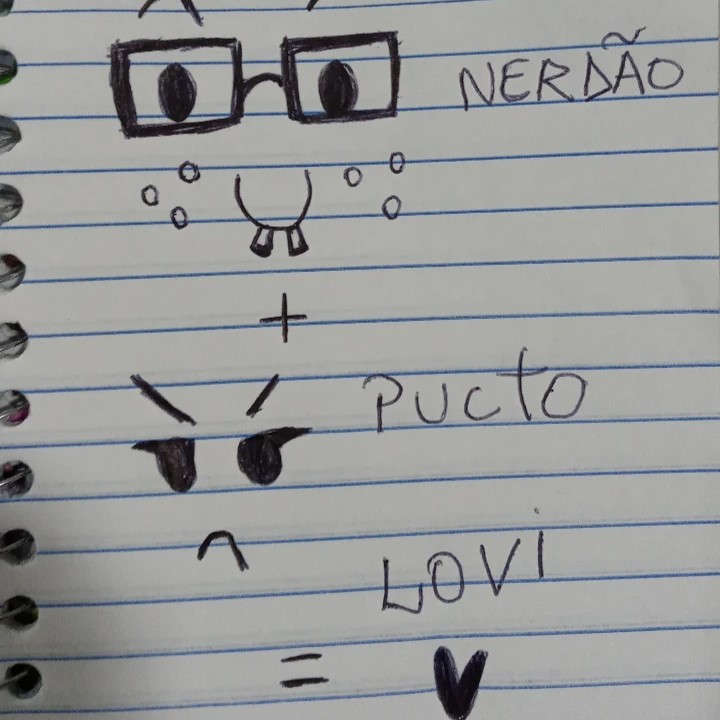 NERDÃO
+
PUCTO
LOVI
=